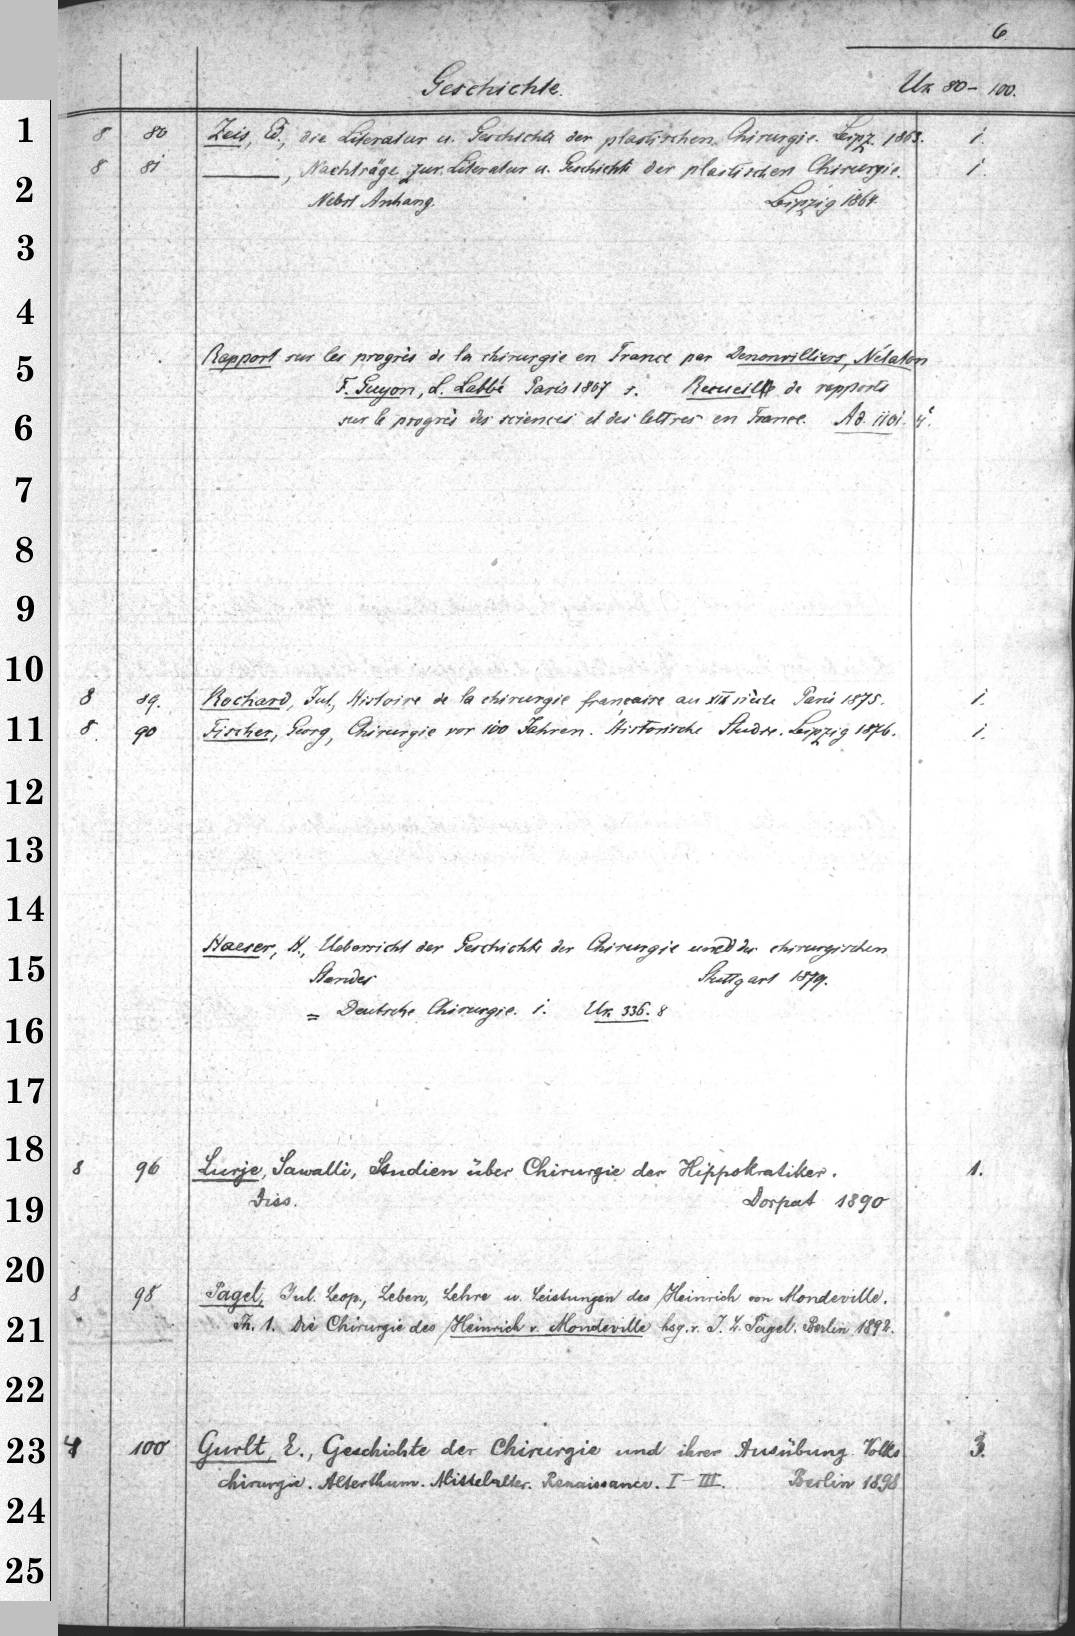 6
Geschichte. Ur. 80 – 100.
1
8 80 Zeis, Ed., die Literatur u. Geschichte der plastischen Chirurgie. Leipz. 1863. 1.
8 81 ———, Nachträge zur Literatur u. Geschichte der plastischen Chirurgie. 1.
2
Nebst Anhang. Leipzig 1864
3
4
Rapport sur les progrès de la chirurgie en France par Denonvilliers, Nélaton
5
F. Guyon, L. Labbé Paris 1867 s. Recueil de rapports
6
sur le progrès des sciences et des lettres en France. Ad. 1101. 4°.
7
8
9
10
8 89. Rochard, Jul., Histoire de la chirurgie française au XIX siècle Paris 1875. 1.
11
8. 90 Fischer, Georg, Chirurgie vor 100 Jahren. Historische Studie. Leipzig 1876. 1.
12
13
14
Haeser, H., Uebersicht der Geschichte der Chirurgie und des chirurgischen
15
Standes Stuttgart 1879.
= Deutsche Chirurgie. 1. Ur. 336. 8
16
17
18
8 96 Lurje, Sawalli, Studien über Chirurgie der Hippokratiker. 1.
19
Diss. Dorpat 1890
20
8 98 Pagel, Jul. Leop., Leben, Lehre u. Leistungen des Heinrich von Mondeville.
21
Th. 1. Die Chirurgie des Heinrich v. Mondeville hsg. v. J. L. Pagel. Berlin 1892.
22
23
4 100 Gurlt, E., Geschichte der Chirurgie und ihrer Ausübung. Volks 3.
chirurgie. Alterthum. Mittelalter. Renaissance. I–III. Berlin 1898
24
25